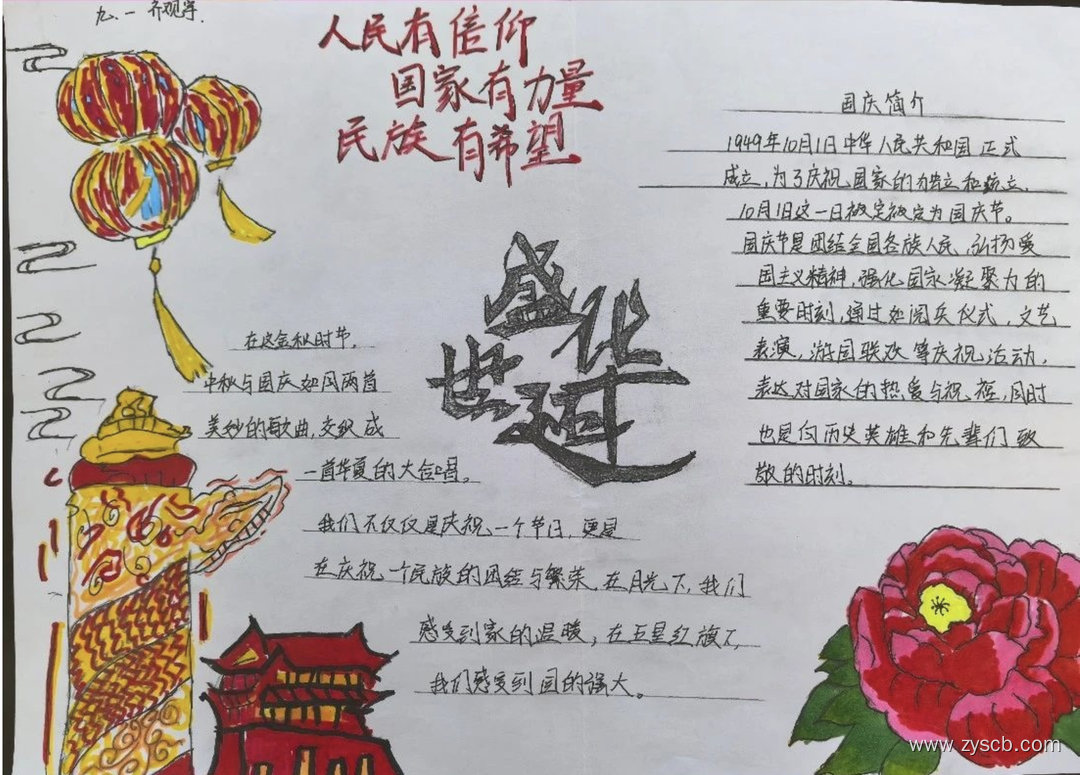 九.一 齐观宇.
人民有信仰
国家有力量
民族有希望
盛世华诞
国庆简介
1949年10月1日中华人民共和国正式
成立,为了庆祝国家的独立和统立.
10月1日这一日被定被定为国庆节。
国庆节是团结全国各族人民,弘扬爱
国主义精神,强化国家凝聚力的
重要时刻,通过如阅兵仪式,文艺
表演,游园联欢等庆祝活动,
表达对国家的热爱与祝福,同时
也是向历史英雄和先辈们致
敬的时刻。
在这金秋时节,
中秋与国庆如同两首
美妙的歌曲,交织成
一首华夏的大合唱。
我们不仅仅是庆祝一个节日,更是
在庆祝一个民族的团结与繁荣,在月光下,我们
感受到家的温暖,在五星红旗下,
我们感受到国的强大。
www.zyscb.com